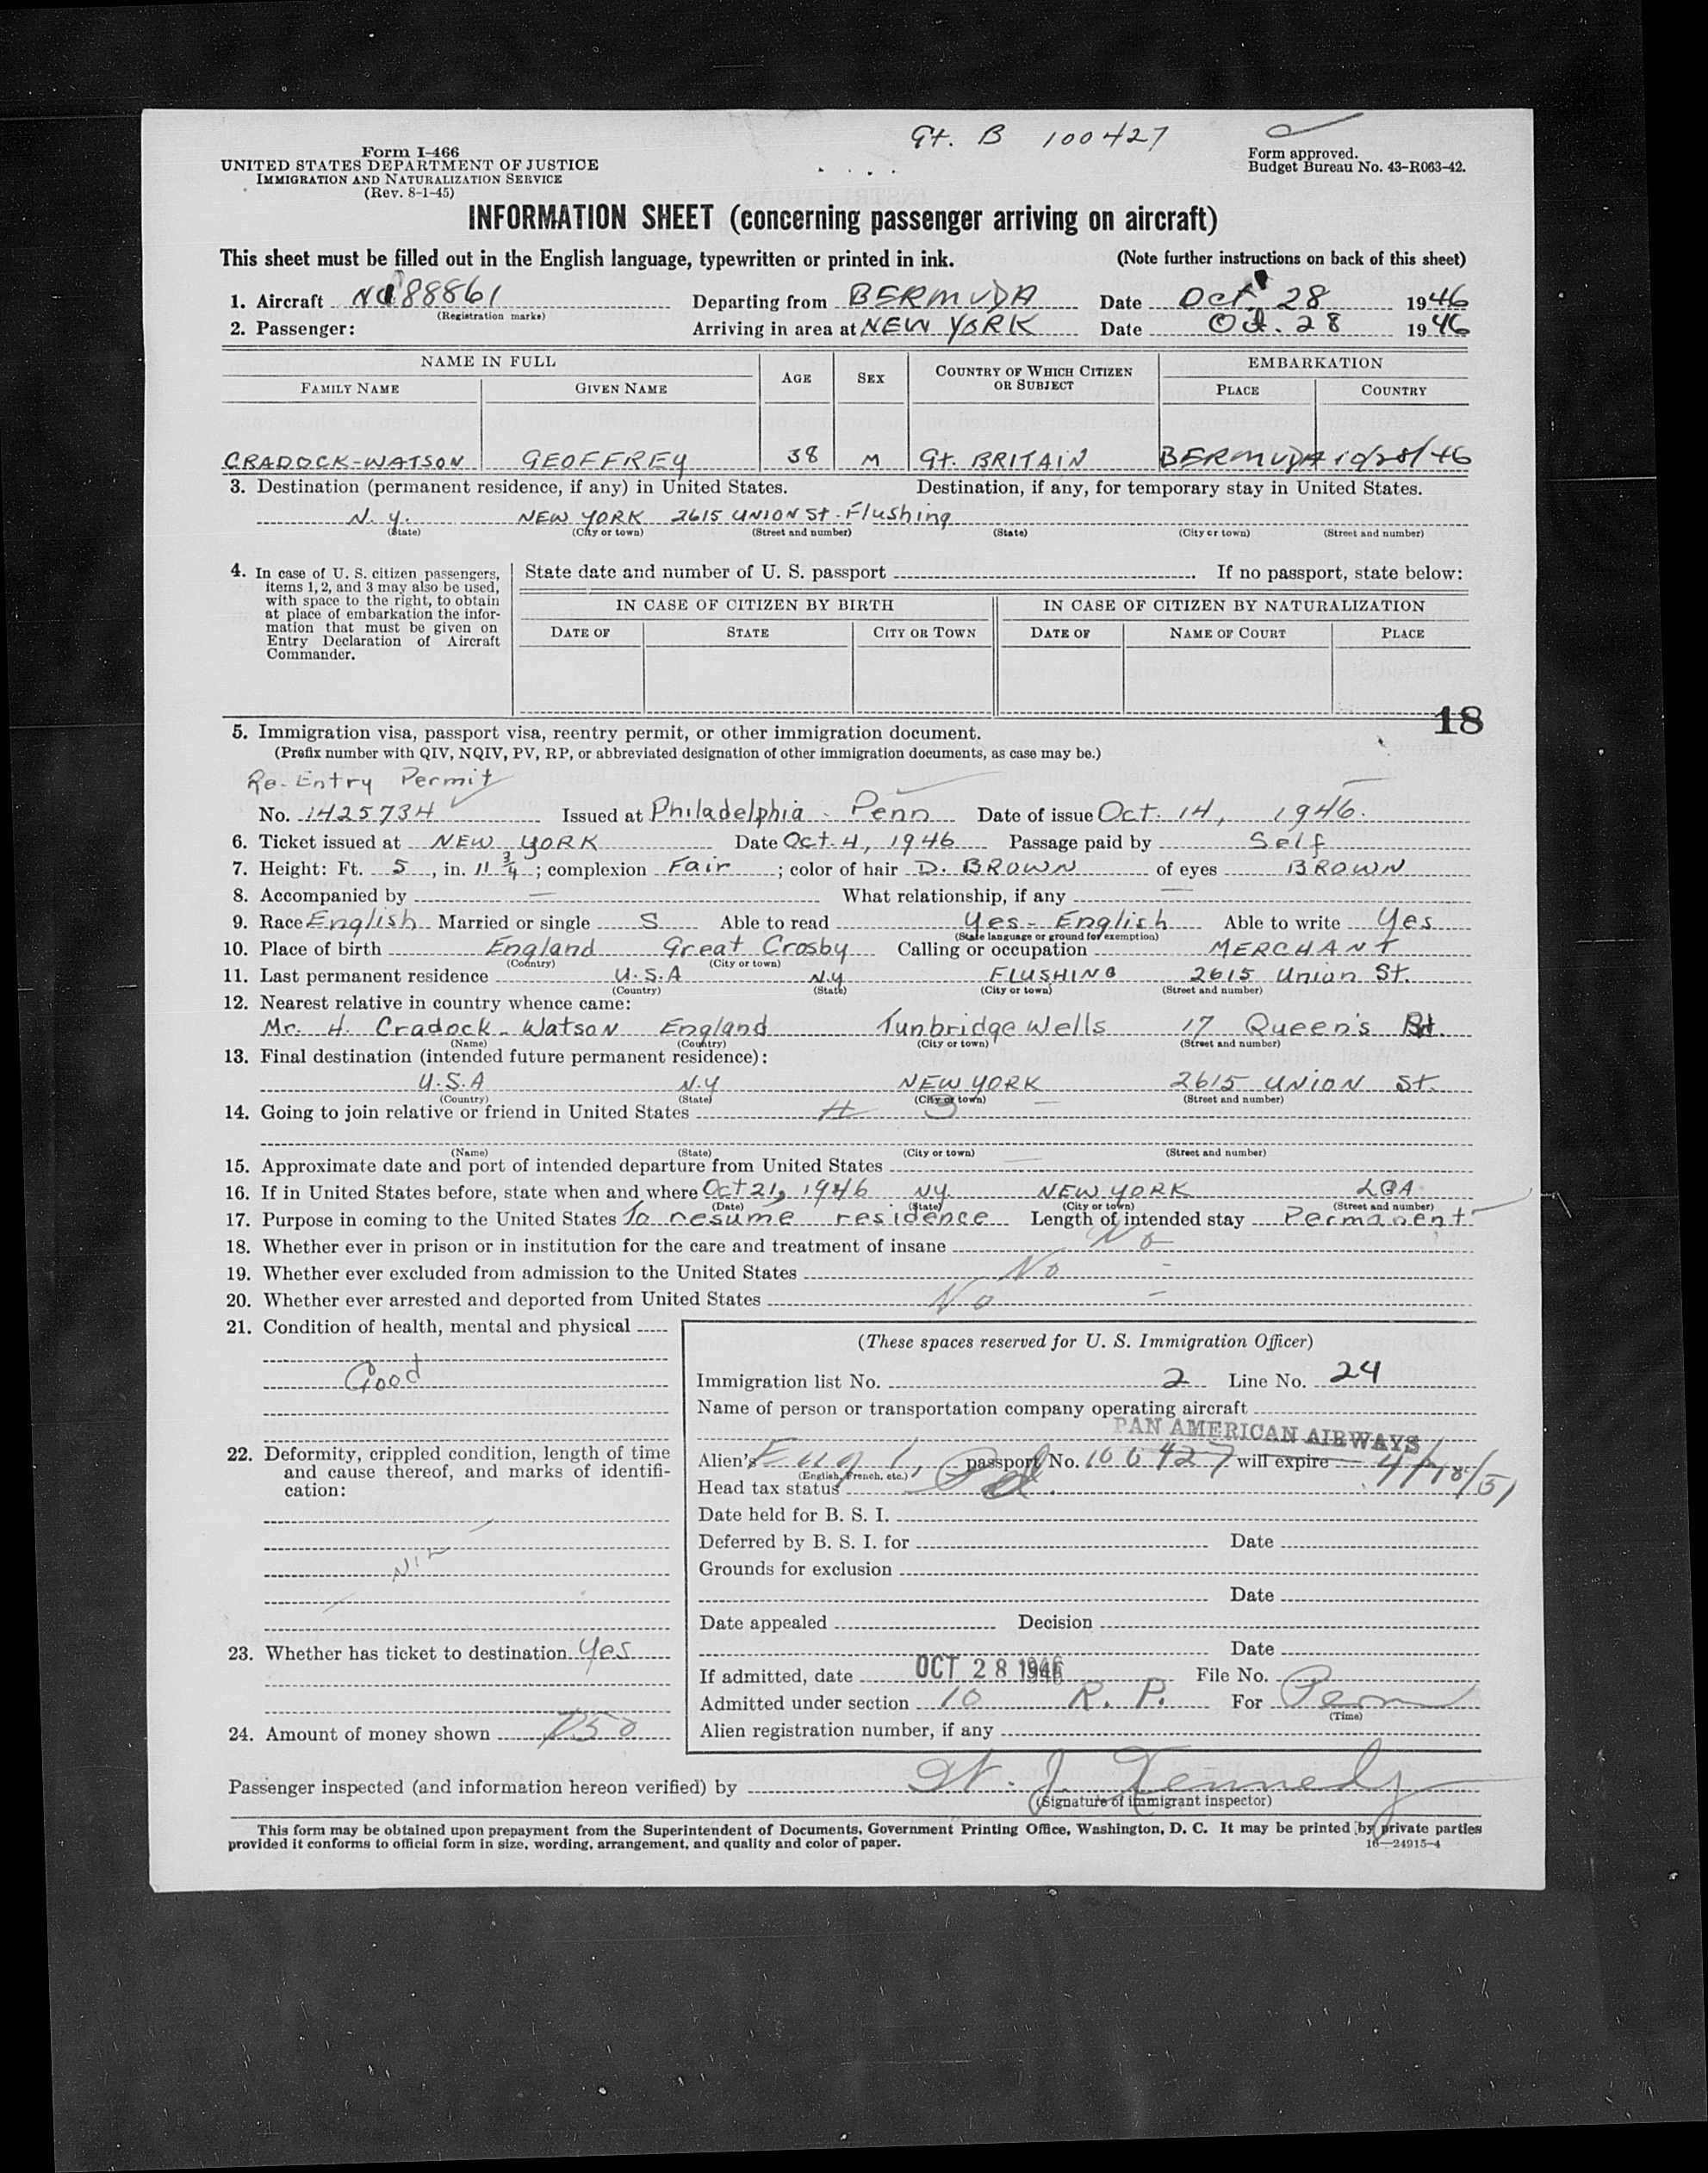 Gt. B 100427
Form I-466
UNITED STATES DEPARTMENT OF JUSTICE
IMMIGRATION AND NATURALIZATION SERVICE
(Rev. 8-1-45)
Form approved.
Budget Bureau No. 43-R063-42.
INFORMATION SHEET (concerning passenger arriving on aircraft)
This sheet must be filled out in the English language, typewritten or printed in ink. (Note further instructions on back of this sheet)
1. Aircraft NC88861 Departing from BERMUDA Date Oct 28 1946
(Registration marks)
2. Passenger: Arriving in area at NEW YORK Date Oct. 28 1946
NAME IN FULL AGE SEX COUNTRY OF WHICH CITIZEN OR SUBJECT EMBARKATION
FAMILY NAME GIVEN NAME PLACE COUNTRY
CRADOCK-WATSON GEOFFREY 38 M Gt. BRITAIN BERMUDA 10/28/46
3. Destination (permanent residence, if any) in United States. Destination, if any, for temporary stay in United States.
N.Y. NEW YORK 2615 UNION St. Flushing
(State) (City or town) (Street and number) (State) (City or town) (Street and number)
4. In case of U. S. citizen passengers,
items 1, 2, and 3 may also be used,
with space to the right, to obtain
at place of embarkation the infor-
mation that must be given on
Entry Declaration of Aircraft
Commander.
State date and number of U. S. passport If no passport, state below:
IN CASE OF CITIZEN BY BIRTH IN CASE OF CITIZEN BY NATURALIZATION
DATE OF STATE CITY OR TOWN DATE OF NAME OF COURT PLACE
18
5. Immigration visa, passport visa, reentry permit, or other immigration document.
(Prefix number with QIV, NQIV, PV, RP, or abbreviated designation of other immigration documents, as case may be.)
Re-Entry Permit
No. 1425734 Issued at Philadelphia. Penn Date of issue Oct. 14, 1946.
6. Ticket issued at NEW YORK Date Oct. 4, 1946 Passage paid by Self
7. Height: Ft. 5, in. 11 3/4; complexion Fair; color of hair D. BROWN of eyes BROWN
8. Accompanied by — What relationship, if any —
9. Race English Married or single S Able to read Yes - English Able to write Yes
(State language or ground for exemption)
10. Place of birth England Great Crosby Calling or occupation MERCHANT
(Country) (City or town)
11. Last permanent residence U.S.A N.Y FLUSHING 2615 Union St.
(Country) (State) (City or town) (Street and number)
12. Nearest relative in country whence came:
Mr. H. Cradock-Watson England Tunbridge Wells 17 Queen's Rd.
(Name) (Country) (City or town) (Street and number)
13. Final destination (intended future permanent residence):
U.S.A N.Y NEW YORK 2615 UNION St.
(Country) (State) (City or town) (Street and number)
14. Going to join relative or friend in United States
(Name) (State) (City or town) (Street and number)
15. Approximate date and port of intended departure from United States
16. If in United States before, state when and where Oct 21, 1946 NY. NEW YORK LGA
(Date) (State) (City or town) (Street and number)
17. Purpose in coming to the United States To resume residence Length of intended stay Permanent
18. Whether ever in prison or in institution for the care and treatment of insane No
19. Whether ever excluded from admission to the United States No
20. Whether ever arrested and deported from United States No
21. Condition of health, mental and physical
Good
22. Deformity, crippled condition, length of time
and cause thereof, and marks of identifi-
cation:
Nil
23. Whether has ticket to destination Yes
24. Amount of money shown
(These spaces reserved for U. S. Immigration Officer)
Immigration list No. 2 Line No. 24
Name of person or transportation company operating aircraft
PAN AMERICAN AIRWAYS
Alien's Engl, passport No. 100427 will expire 4/18/51
(English, French, etc.)
Head tax status Pd.
Date held for B. S. I.
Deferred by B. S. I. for Date
Grounds for exclusion
Date
Date appealed Decision
Date
If admitted, date OCT 28 1946 File No.
Admitted under section 10 R. P. For Perm
(Time)
Alien registration number, if any
Passenger inspected (and information hereon verified) by W. J. Kennedy
(Signature of immigrant inspector)
This form may be obtained upon prepayment from the Superintendent of Documents, Government Printing Office, Washington, D. C. It may be printed by private parties
provided it conforms to official form in size, wording, arrangement, and quality and color of paper. 16—24915-4